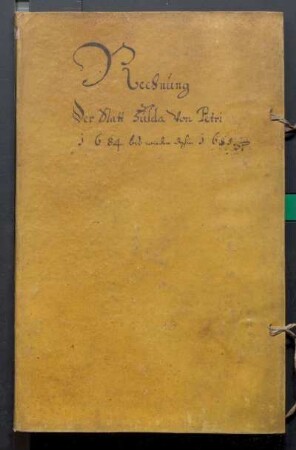 Rechnung
Der Statt Fulda Von Petri
1684 bis wieder dahin 1685